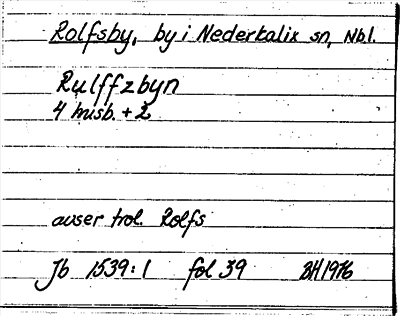 Rolfsby, by i Nederkalix sn, Nbl.
Rulffzbyn
4 misb. + 2
avser trol. Rolfs
Jb 1539:1 fol 39 BH 1976